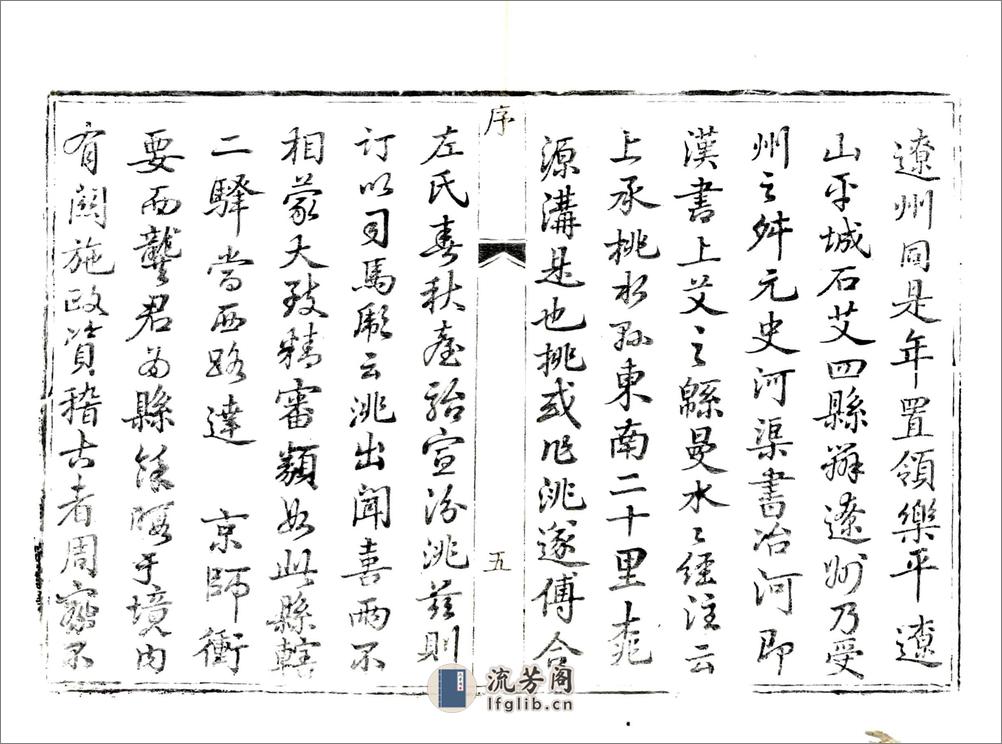 遼州同是年置領樂平遼
山平城石艾四縣辯遼州乃受
州之舛元史河渠書冶河即
漢書上艾之緜曼水水經注云
上承桃水縣東南二十里桃
源溝是也桃或作洮遂傅合
序
五
左氏春秋臺駘宣汾洮茲則
訂以司馬彪云洮出聞喜兩不
相蒙大致精審類如此縣轄
二驛當西路達 京師衝
要而龔君為縣餘暇于境內
有關施政資稽古者周密不
流芳阁
lfglib.cn